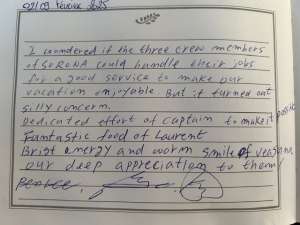 02/09 Février 2025
I wondered if the three crew members
of SORONA could handle their jobs
for a good service to make our
vacation enjoyable. But it turned out
silly concern.
Dedicated effort of captain to make it
Fantastic food of Laurent
Brist energy and worm smile of
our deep appreciation to them!